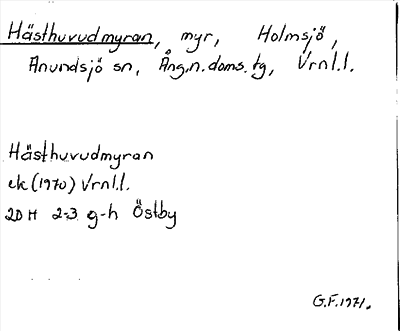 Hästhuvudmyran, myr, Holmsjö,
Anundsjö sn, Ång.n.doms.tg, Vrnl.l.
Hästhuvudmyran
ek (1970) Vrnl.l.
20 H 2-3 g-h Östby
G.F. 1971.